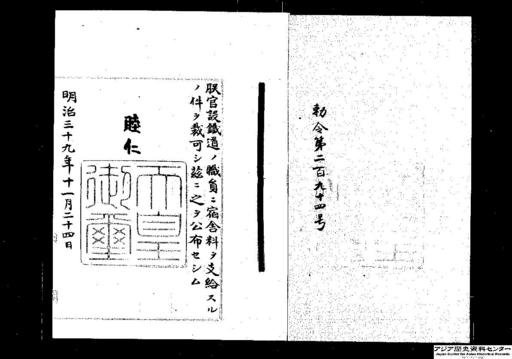 勅令第二百九十四号
朕官設鐵道ノ職員ニ宿舎料ヲ支給スル
ノ件ヲ裁可シ茲ニ之ヲ公布セシム
睦仁
天皇
御璽
明治三十九年十一月二十四日
アジア歴史資料センター
Japan Center for Asian Historical Records